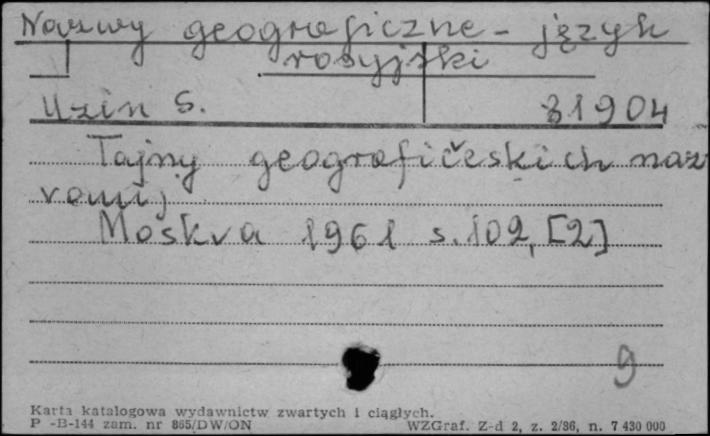 Nazwy geograficzne - język
rosyjski
Uzin S. 31904
Tajny geografičeskich naz
vanij
Moskva 1961 s. 102, [2]
9
Karta katalogowa wydawnictw zwartych i ciągłych.
P -B-144 zam. nr 865/DW/ON WZGraf. Z-d 2, z. 2/86, n. 7 430 000